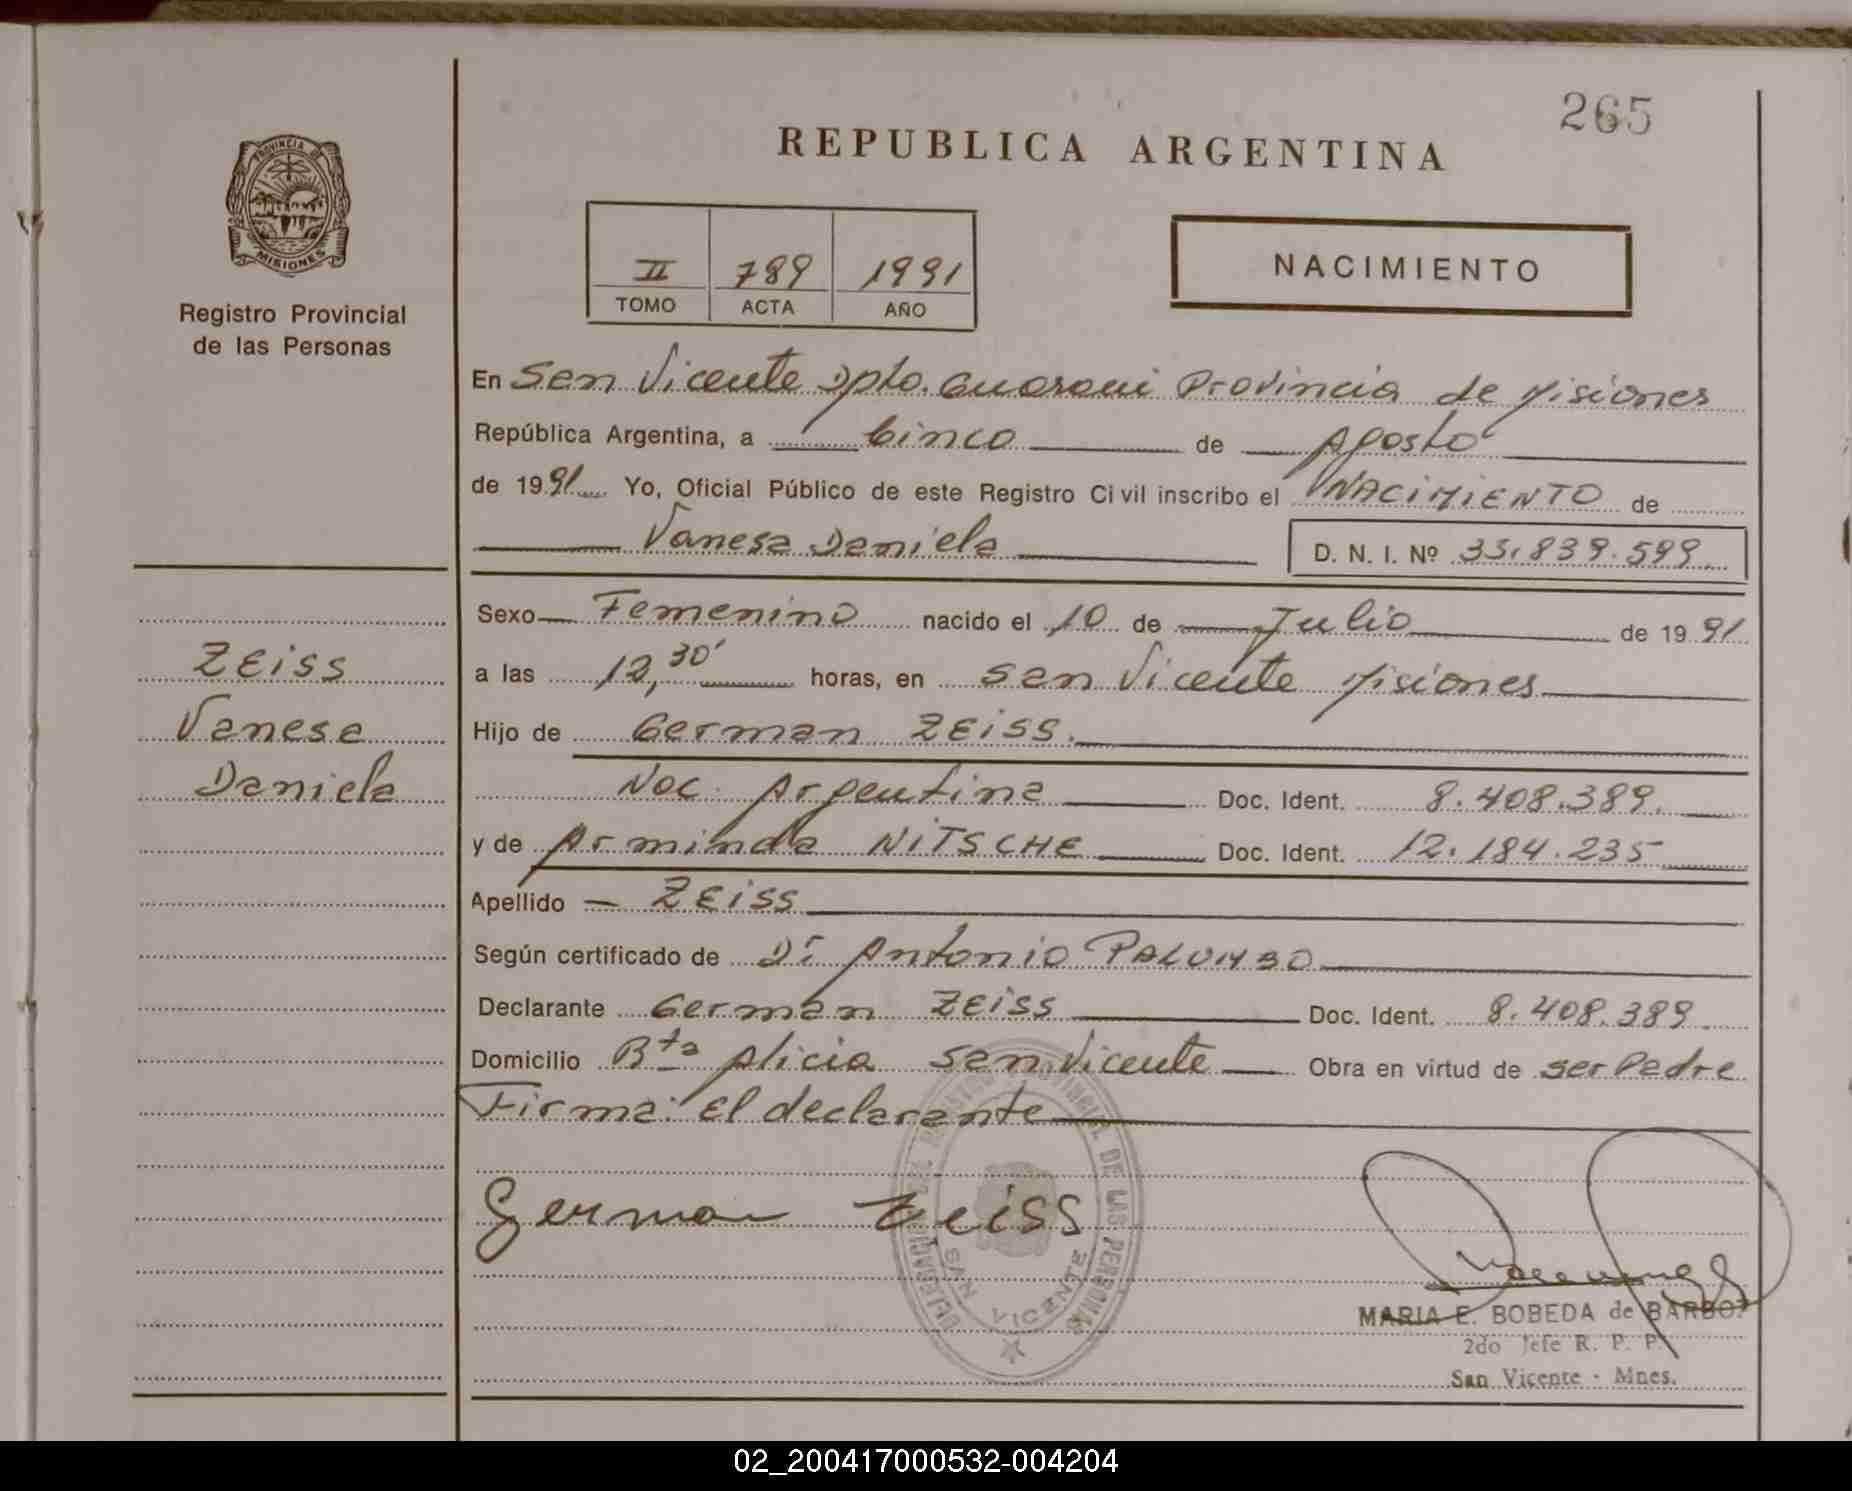 265
REPUBLICA ARGENTINA
PROVINCIA DE
MISIONES
Registro Provincial
de las Personas
II 789 1991
TOMO ACTA AÑO
NACIMIENTO
En San Vicente Dpto. Guarani Provincia de Misiones
República Argentina, a Cinco de Agosto
de 1991 Yo, Oficial Público de este Registro Civil inscribo el NACIMIENTO de
Vanesa Daniela D. N. I. Nº 35.839.599
Sexo Femenino nacido el 10 de Julio de 1991
a las 12,30' horas, en San Vicente Misiones
Hijo de German ZEiSS.
Nac. Argentina Doc. Ident. 8.408.389.
y de Arminda NiTSCHE Doc. Ident. 12.184.235
Apellido ZEiSS
Según certificado de Dr Antonio PALUMBO
Declarante German ZEiSS Doc. Ident. 8.408.389
Domicilio Bta Alicia San Vicente Obra en virtud de ser Padre
Firma: El declarante
German Zeiss
ZEiSS
Vanesa
Daniela
DE LAS PERSONAS
SAN VICENTE
MARIA E. BOBEDA de
2do Jefe R. P. P.
San Vicente - Mnes.
02_200417000532-004204